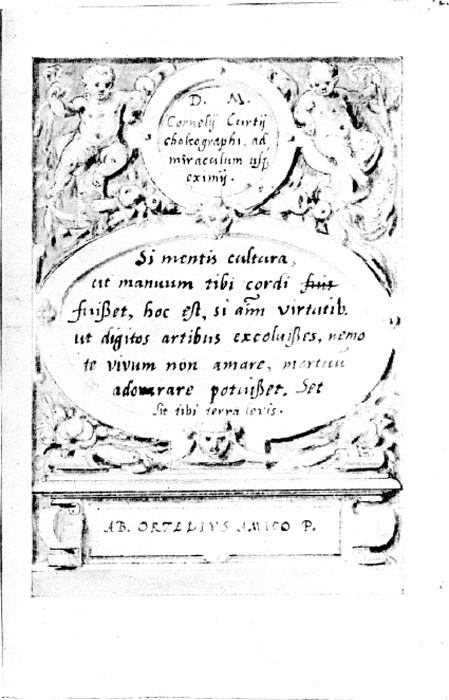 D. M.
Cornelij Curtij
chalcographi, ad
miraculum usq
eximij.
Si mentis cultura,
ut manuum tibi cordi fuis
fuißet, hoc est, si aīm virtutib.
ut digitos artibus excoluißes, nemo
te vivum non amare, mortuū
adorare potuißet. Set
Sit tibi terra levis.
AB. ORTELIVS AMICO P.